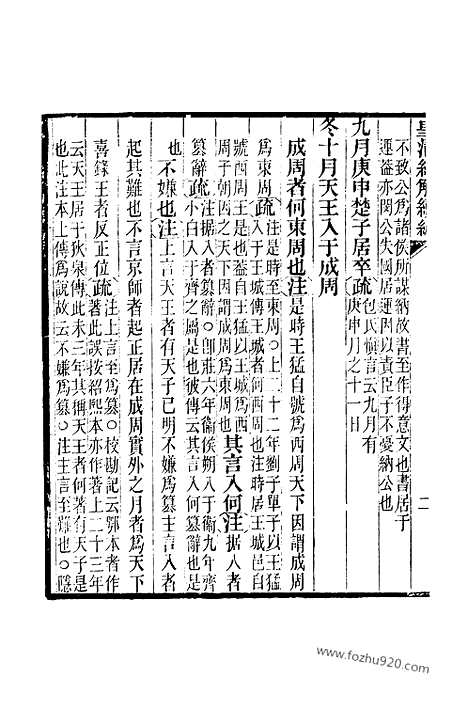 皇清經解續編
二
不致公爲諸侯所謀納故書至作得意文也書居于
運者亦閔公失國居運因以責臣子不憂納公也
九月庚申楚子居卒疏包氏愼言云九月有
庚申月之十一日
冬十月天王入于成周
成周者何東周也注是時王猛自號爲西周天下因謂成周
爲東周疏注是時至東周○上二十二年劉子單子以王猛
入于王城傳王城者何西周也注時居王城邑自
號西周王是也蓋自王猛以王城爲西
周子朝因之天下因謂成周爲東周也其言入何注据入者
簒辭疏注据入者簒辭○卽莊六年衞侯朔入于衞九年齊
小白入于齊之屬是也彼傳云其言入何簒辭也是
也不嫌也注上言天王者有天子已明不嫌爲簒主言入者
起其難也不言京師者起正居在成周實外之月者爲天下
喜錄王者反正位疏注上言至爲簒○校勘記云鄂本者作
著此誤按紹熙本亦作著上二十三年
云天王居于狄泉傳此未三年其稱天王者何著有天子是
也此注本上傳爲說故云不嫌爲簒○注主言至難也○隱
www.fozhu920.com